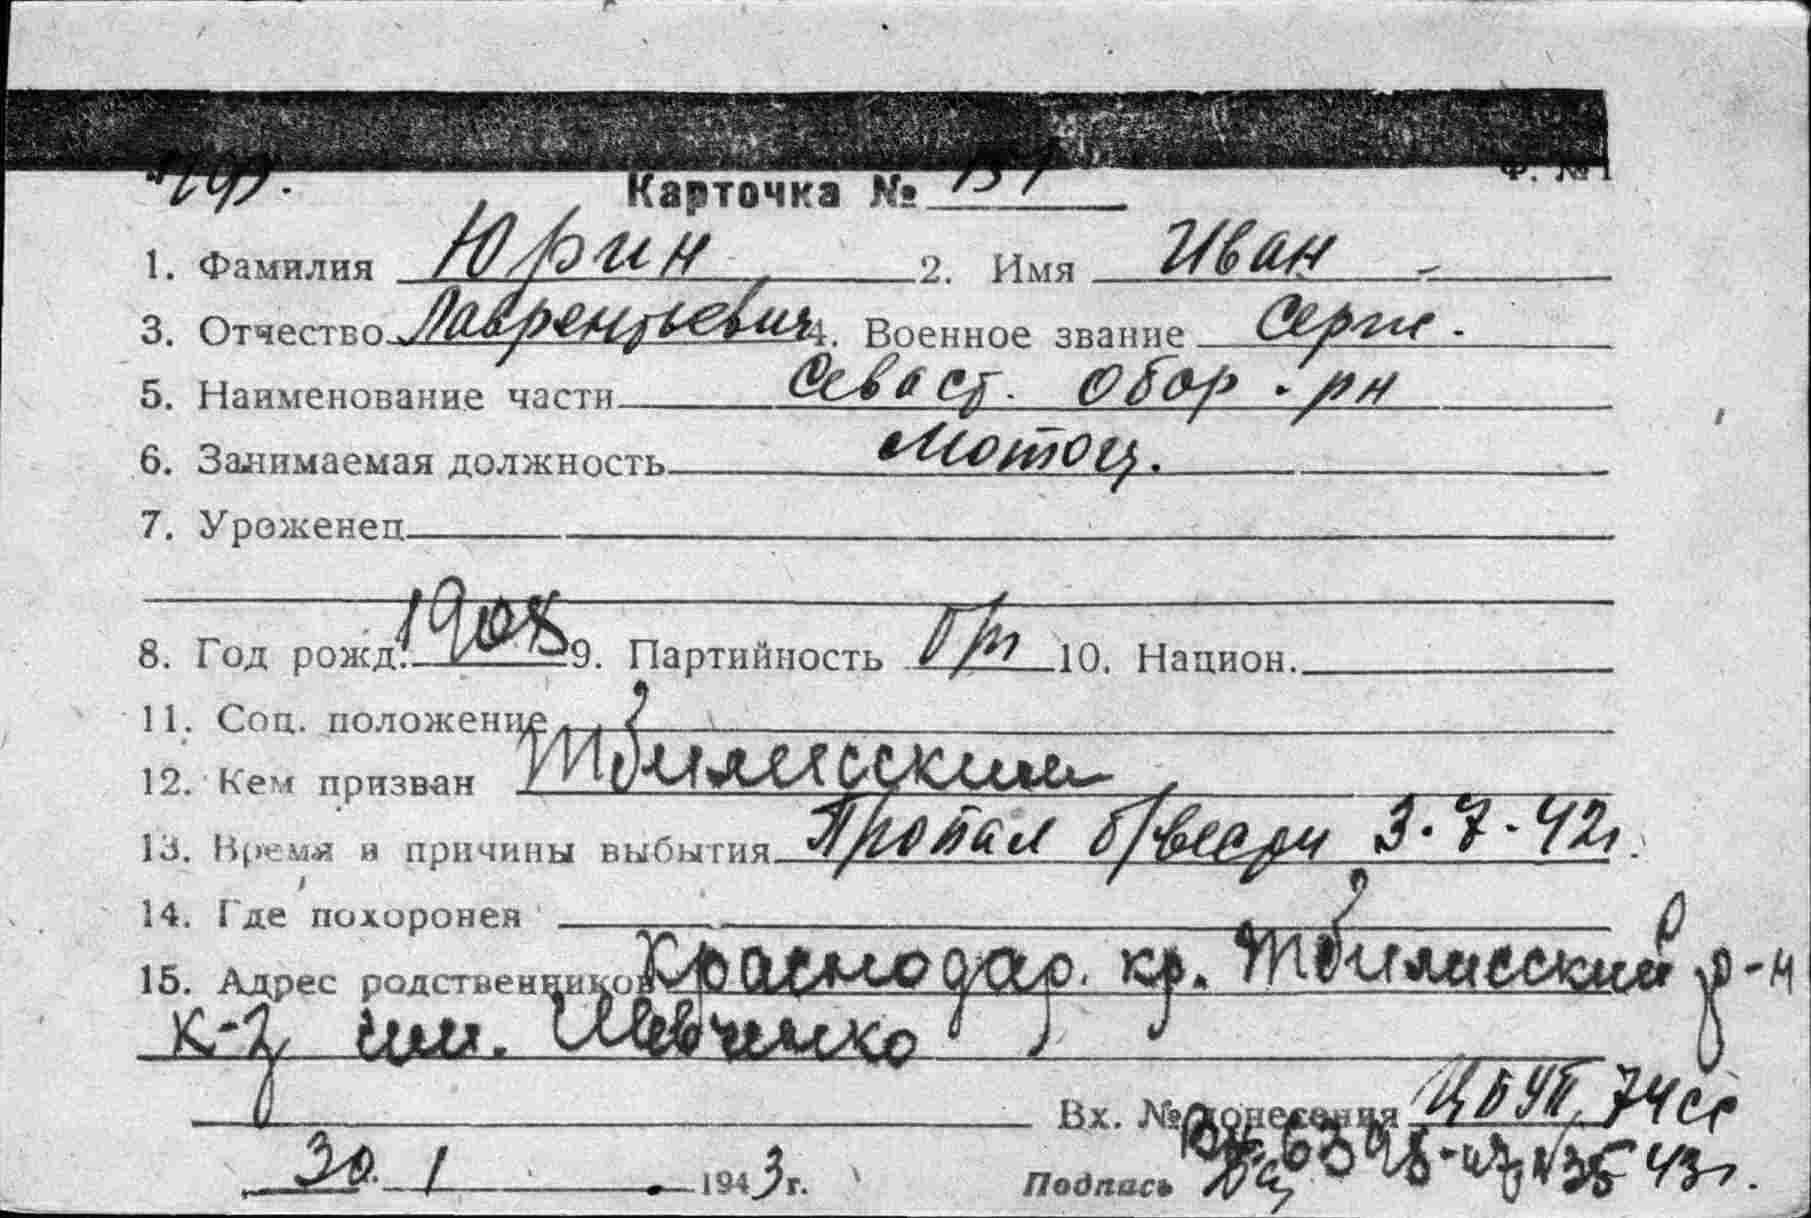 Ф. № 1
Карточка №
1. Фамилия Юрин 2. Имя Иван
3. Отчество Лаврентьевич 4. Военное звание Серж.
5. Наименование части Севаст. Обор. рн
6. Занимаемая должность Мотоц.
7. Уроженец
8. Год рожд. 1908 9. Партийность б/п 10. Национ.
11. Соц. положение
12. Кем призван Тбилисским
13. Время и причины выбытия Пропал б/вести 3.7.42г.
14. Где похоронен
15. Адрес родственников Краснодар. кр. Тбилисский р-н
к-з им. Шевченко
Вх. № донесения ЦБУП 74сс
30. 1 1943г. Подпись 43г.